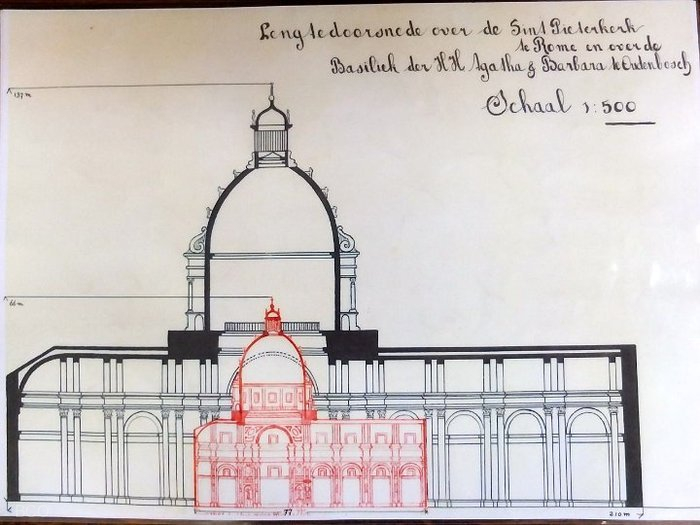 Lengtedoorsnede over de Sint Pieterkerk
te Rome en over de
Basiliek der HH Agatha & Barbara te Oudenbosch
Schaal 1:500
137 m
66 m
77
210 m